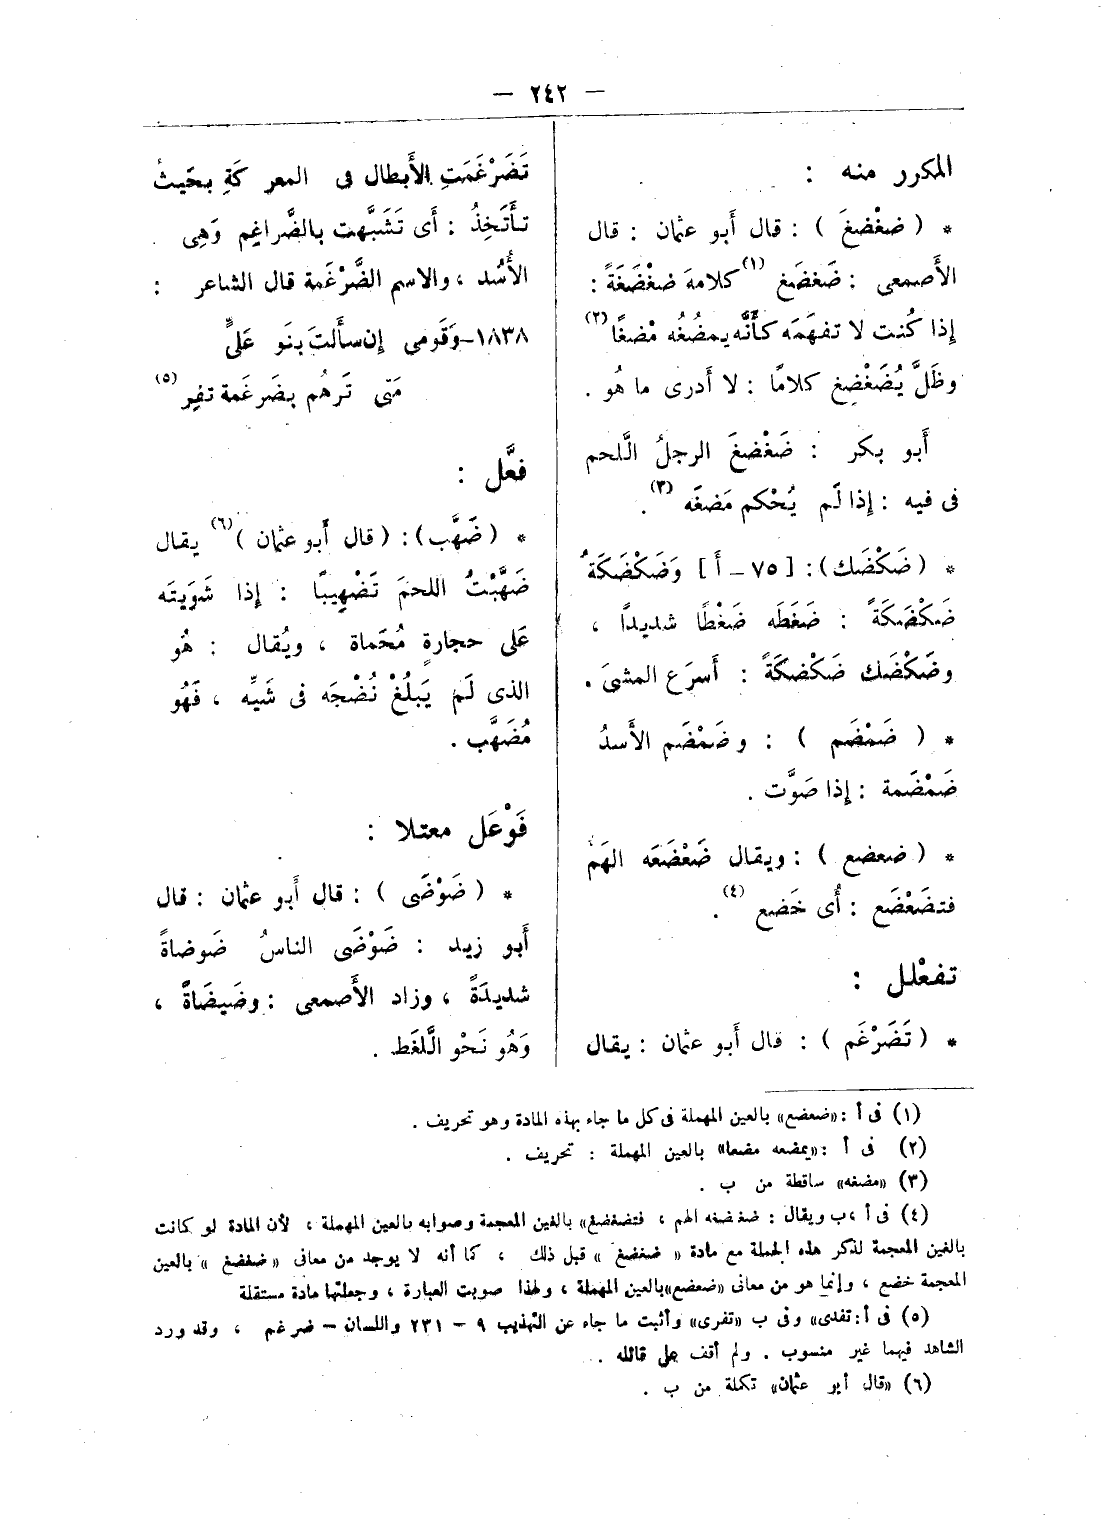 — ٢٤٢ —
المكرر منه :
* ( ضغْضغَ ) : قال أَبو عثمان : قال
الأَصمعى : ضَغضَغ (١) كلامهَ ضغْضَغَةً :
إذا كُنت لا تفهَمَه كأَنَّه يمضُغُه مْضغًا (٢)
وظَلَّ يُضَغْضِغ كلامًا : لا أَدرى ما هُو .
أَبو بكر : ضَغْضغَ الرجلُ الَّلحم
فى فيه : إذا لَم يُحْكم مَضغَه (٣) .
* ( ضَكْضَك) : [ ٧٥ – أ ] وَضَكْضَكَهُ
ضَكْضَكَةً : ضَغَطَه ضَغْطًا شديدًا ،
وضَكْضَك ضَكْضكَةً : أَسرَع المشىَ .
* ( ضَمْضَم ) : وضَمْضَم الأَسدُ
ضَمْضَمة : إذا صَوَّت .
* ( ضعضع ) : ويقال ضَعْضَعَه الهَمّ
فتضَعْضَع : أَى خَضع (٤) .
تفعْلل :
* ( تَضَرْغَم ) : قال أَبو عثمان : يقال
تَضَرْغَمَتِ الأَبطال فى المعركَةِ بحَيثُ
تأْتَخِذُ : أَى تَشَبَّهت بالضَّراغِم وَهِى
الأُسُد ، والاسم الضَّرْغَمة قال الشاعر :
١٨٣٨–وَقَومى إن سأَلتَ بنَو عَلىٍّ
مَتى تَرهُم بضَرغَمة تفِر (٥)
فعَّل :
* (ضَهَّب) : ( قال أَبو عثمان ) (٦) يقال
ضَهَّبْتُ اللحمَ تَضْهِيبًا : إذا شَوَيتَه
عَلى حجارةٍ مُحَماة ، ويُقال : هُو
الذى لَم يَبلُغْ نُضْجَه فى شَيِّه ، فَهُو
مُضَهَّب .
فَوْعَل معتلا :
* ( ضَوْضَى ) : قال أَبو عثمان : قال
أَبو زيد : ضَوْضَى الناسُ ضَوضاةً
شديدَةً ، وزاد الأَصمعى : وضَيضَاةً ،
وَهُو نَحْو الَّلغَط .
(١) فى أ : «ضعضع» بالعين المهملة فى كل ما جاء بهذه المادة وهو تحريف .
(٢) فى أ : «يمضعه مضعا» بالعين المهملة : تحريف .
(٣) «مضغه» ساقطة من ب .
(٤) فى أ ، ب ويقال : ضغضغه الهم ، فتضغضغ» بالغين المعجمة وصوابه بالعين المهملة ، لأن المادة لو كانت
بالغين المعجمة لذكر هذه الجملة مع مادة « ضغضغ » قبل ذلك ، كما أنه لا يوجد من معانى « ضغضغ » بالعين
المعجمة خضع ، وإنما هو من معانى «ضعضع» بالعين المهملة ، ولهذا صوبت العبارة ، وجعلتها مادة مستقلة
(٥) فى أ : تفدى» وفى ب «تفرى» وأثبت ما جاء عن التهذيب ٩ – ٢٣١ واللسان – ضرغم ، وقد ورد
الشاهد فيهما غير منسوب . ولم أقف على قائله .
(٦) «قال أبو عثمان» تكملة من ب .